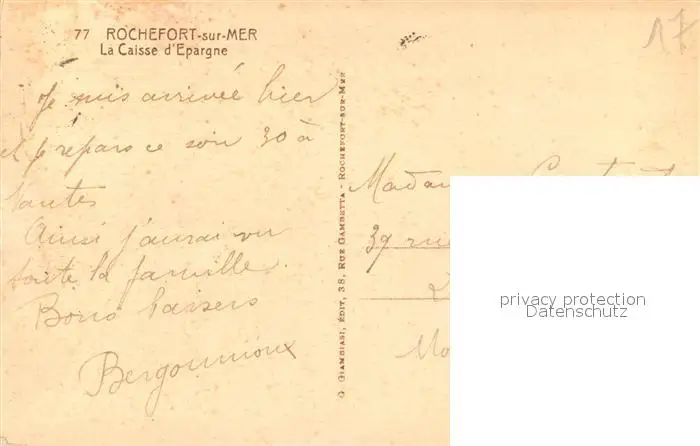 77 ROCHEFORT-sur-MER
La Caisse d'Epargne
17
Je suis arrivée hier
et repars ce soir 30 à
Nantes
Ainsi j'aurai vu
toute la famille.
Bons baisers
Bergounioux
G. GIAMBIASI, ÉDIT, 38, RUE GAMBETTA - ROCHEFORT-SUR-MER
39 rue
privacy protection
Datenschutz